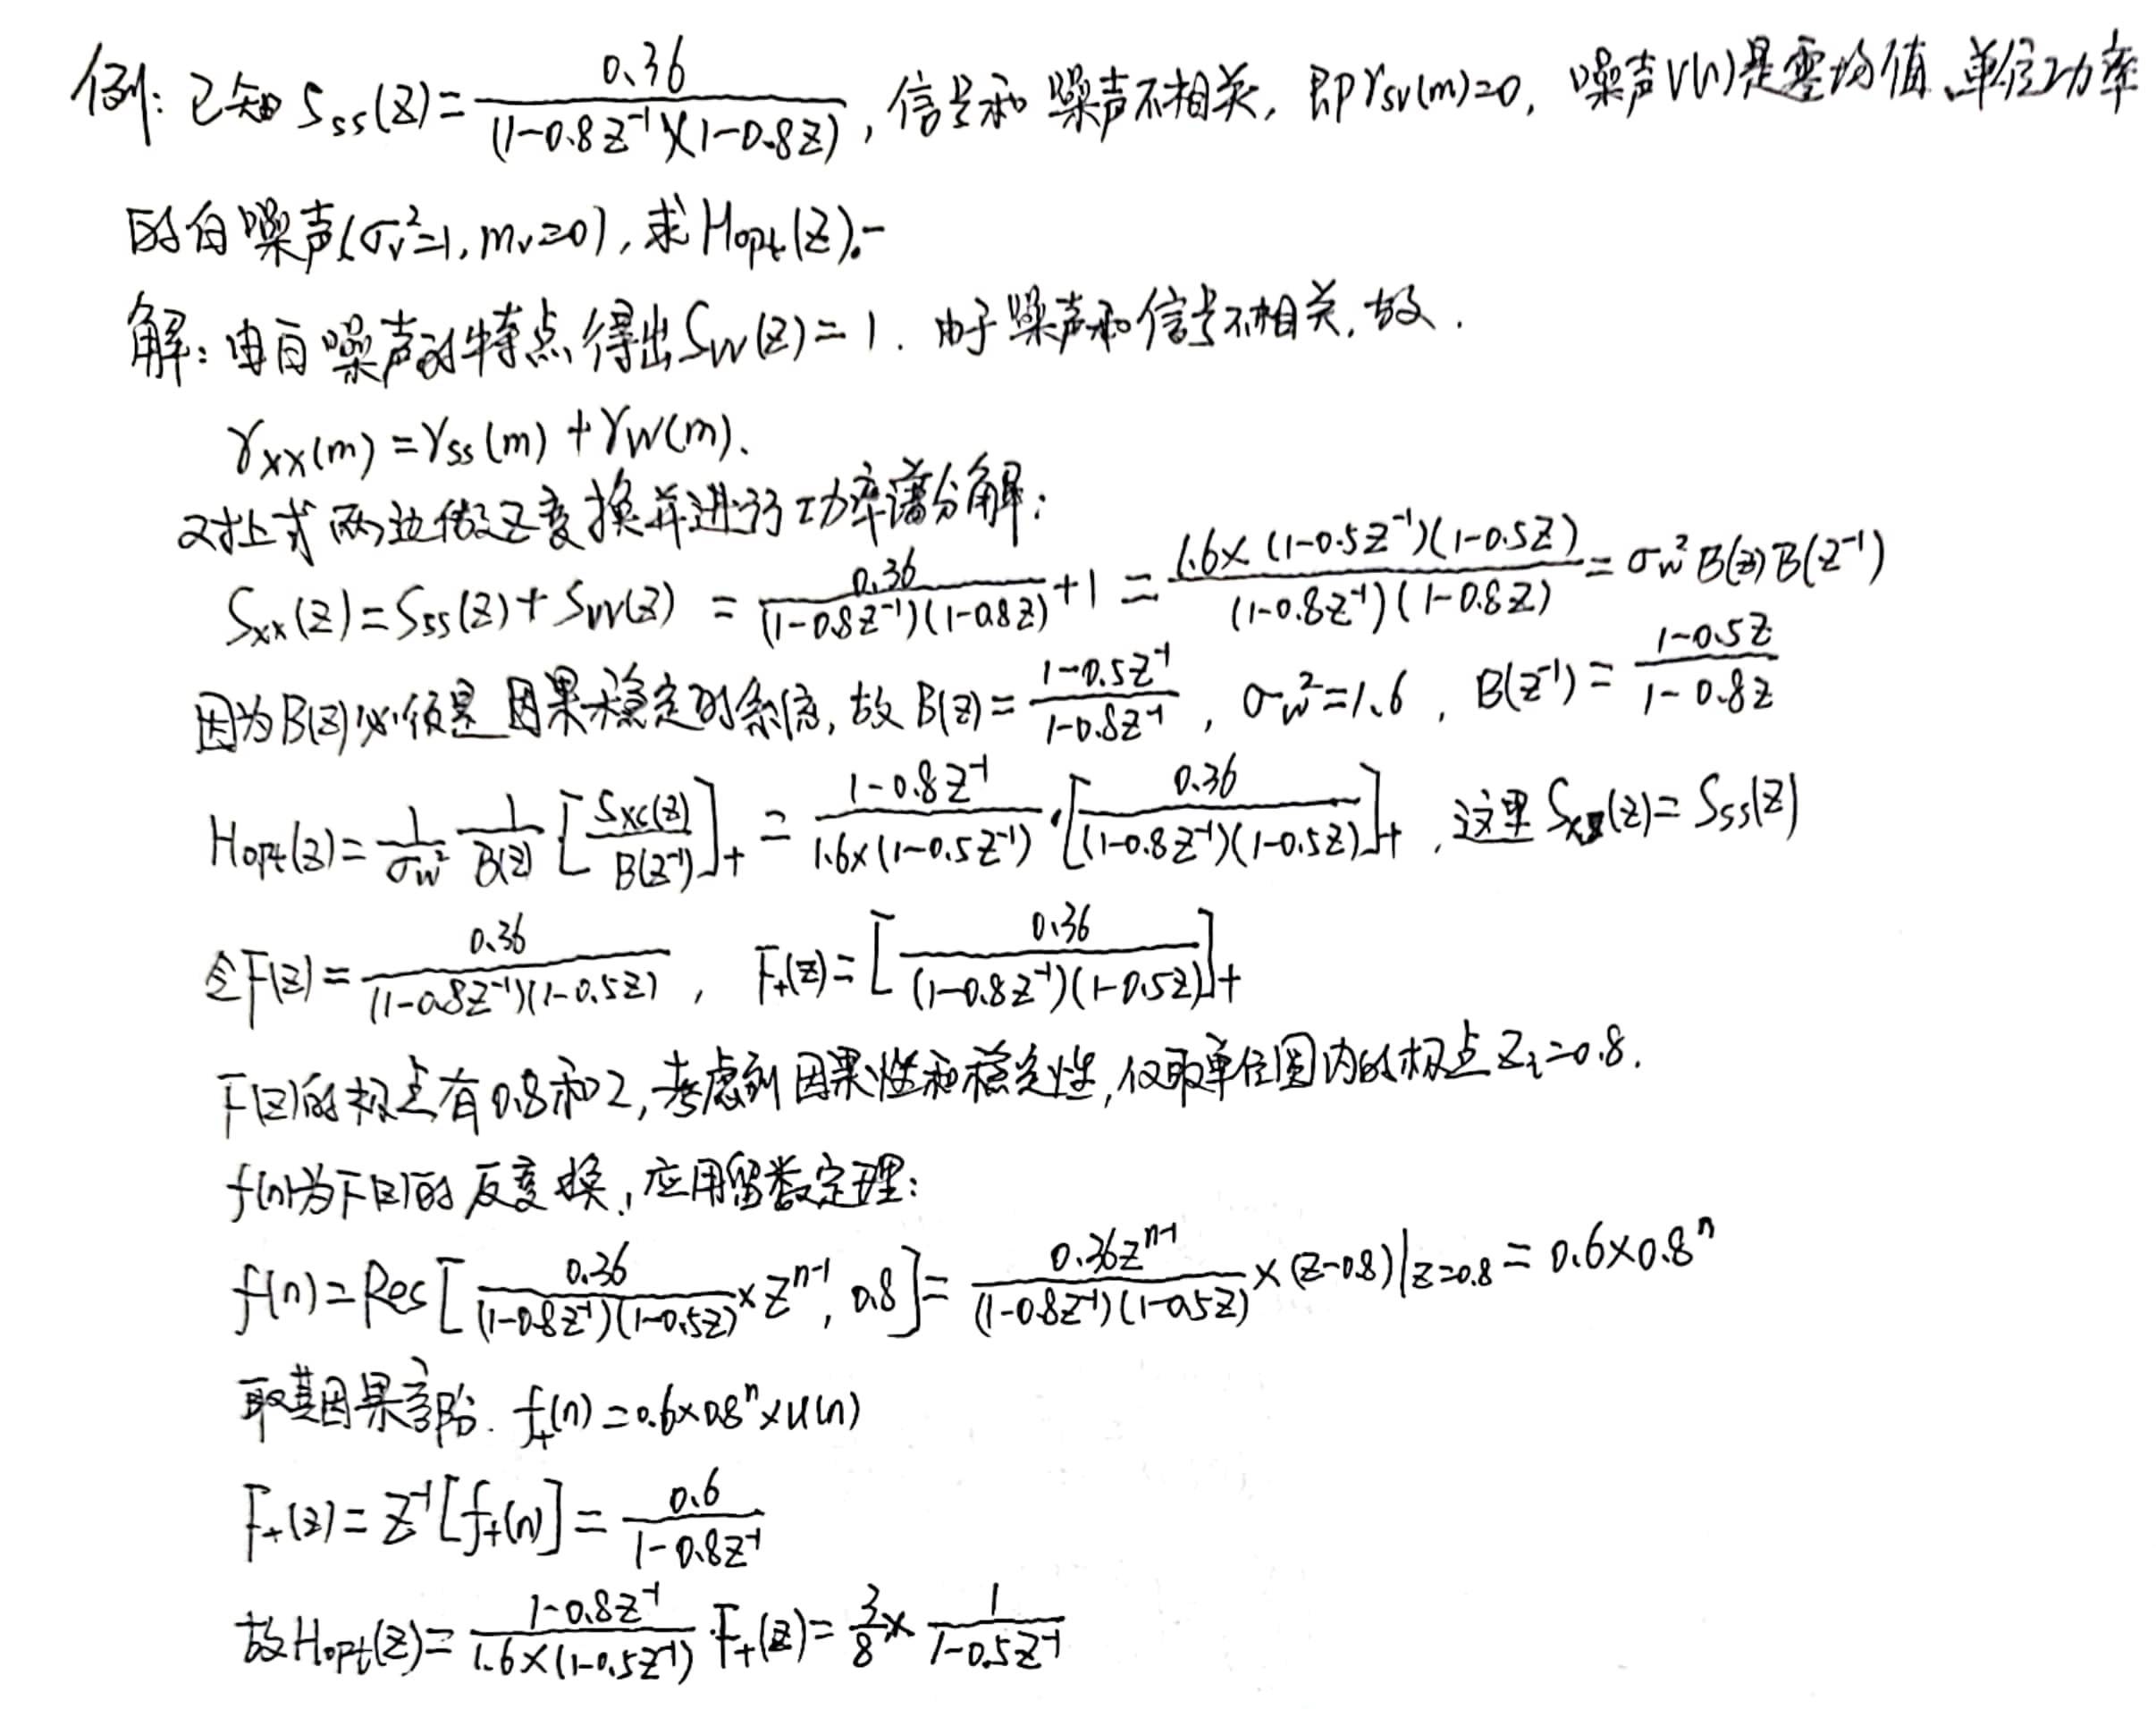 例: 已知 S_ss(z) = 0.36 / ((1-0.8z^-1)(1-0.8z)), 信号和噪声不相关, 即 γ_sv(m)=0, 噪声v(n)是零均值、单位功率
的白噪声(σ_v^2=1, m_v=0), 求H_opt(z).-
解: 由白噪声的特点得出S_vv(z) = 1. 由于噪声和信号不相关, 故.
γ_xx(m) = γ_ss(m) + γ_vv(m).
对上式两边做Z变换并进行功率谱分解:
S_xx(z) = S_ss(z) + S_vv(z) = 0.36 / ((1-0.8z^-1)(1-0.8z)) + 1 = 1.6×(1-0.5z^-1)(1-0.5z) / ((1-0.8z^-1)(1-0.8z)) = σ_w^2 B(z)B(z^-1)
因为B(z)必须是因果稳定的系统, 故 B(z) = (1-0.5z^-1) / (1-0.8z^-1), σ_w^2=1.6, B(z^-1) = (1-0.5z) / (1-0.8z)
H_opt(z) = 1/σ_w^2 1/B(z) [S_xs(z) / B(z^-1)]_+ = (1-0.8z^-1) / (1.6×(1-0.5z^-1)) · [0.36 / ((1-0.8z^-1)(1-0.5z))]_+, 这里 S_xs(z) = S_ss(z)
令F(z) = 0.36 / ((1-0.8z^-1)(1-0.5z)), F_+(z) = [0.36 / ((1-0.8z^-1)(1-0.5z))]_+
F(z)的极点有0.8和2, 考虑到因果性和稳定性, 仅取单位圆内的极点 z_i=0.8.
f(n)为F(z)的反变换, 应用留数定理:
f(n) = Res[0.36 / ((1-0.8z^-1)(1-0.5z)) × z^(n-1), 0.8] = 0.36z^(n-1) / ((1-0.8z^-1)(1-0.5z)) × (z-0.8)|z=0.8 = 0.6×0.8^n
取其因果部分. f_+(n) = 0.6×0.8^n×u(n)
F_+(z) = Z^-1[f_+(n)] = 0.6 / (1-0.8z^-1)
故H_opt(z) = (1-0.8z^-1) / (1.6×(1-0.5z^-1)) · F_+(z) = 3/8 × 1 / (1-0.5z^-1)